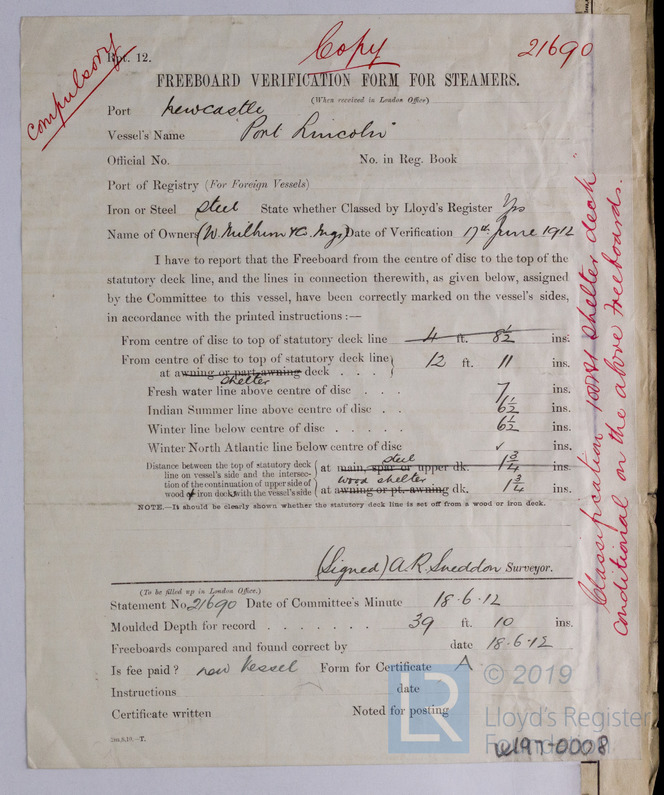 Rpt. 12.
Copy
21690
Compulsory
FREEBOARD VERIFICATION FORM FOR STEAMERS.
(When received in London Office)
Port Newcastle
Vessel's Name "Port Lincoln"
Official No. No. in Reg. Book
Port of Registry (For Foreign Vessels)
Iron or Steel Steel State whether Classed by Lloyd's Register Yes
Name of Owners (W. Milburn & Co. Mgrs) Date of Verification 17th June 1912
I have to report that the Freeboard from the centre of disc to the top of the
statutory deck line, and the lines in connection therewith, as given below, assigned
by the Committee to this vessel, have been correctly marked on the vessel's sides,
in accordance with the printed instructions :—
From centre of disc to top of statutory deck line 4 ft. 8½ ins.
From centre of disc to top of statutory deck line
at awning or part awning deck . . . 12 ft. 11 ins.
Shelter
Fresh water line above centre of disc . . . 7 ins.
Indian Summer line above centre of disc . . 6½ ins.
Winter line below centre of disc . . . . 6½ ins.
Winter North Atlantic line below centre of disc ✓ ins.
Distance between the top of statutory deck
line on vessel's side and the intersec-
tion of the continuation of upper side of
wood or iron deck with the vessel's side
steel
at main, spar or upper dk. 1¾ ins.
wood shelter
at awning or pt. awning dk. 1¾ ins.
NOTE.—It should be clearly shown whether the statutory deck line is set off from a wood or iron deck.
(Signed) A. R. Sneddon Surveyor.
(To be filled up in London Office.)
Statement No. 21690 Date of Committee's Minute 18.6.12
Moulded Depth for record . . . . . . . 39 ft. 10 ins.
Freeboards compared and found correct by date 18.6.12
Is fee paid? new Vessel Form for Certificate A
Instructions date
Certificate written Noted for posting
Classification 100A1 "Shelter deck"
conditional on the above freeboards.
LR
© 2019
Lloyd's Register
Foundation
W197-0008